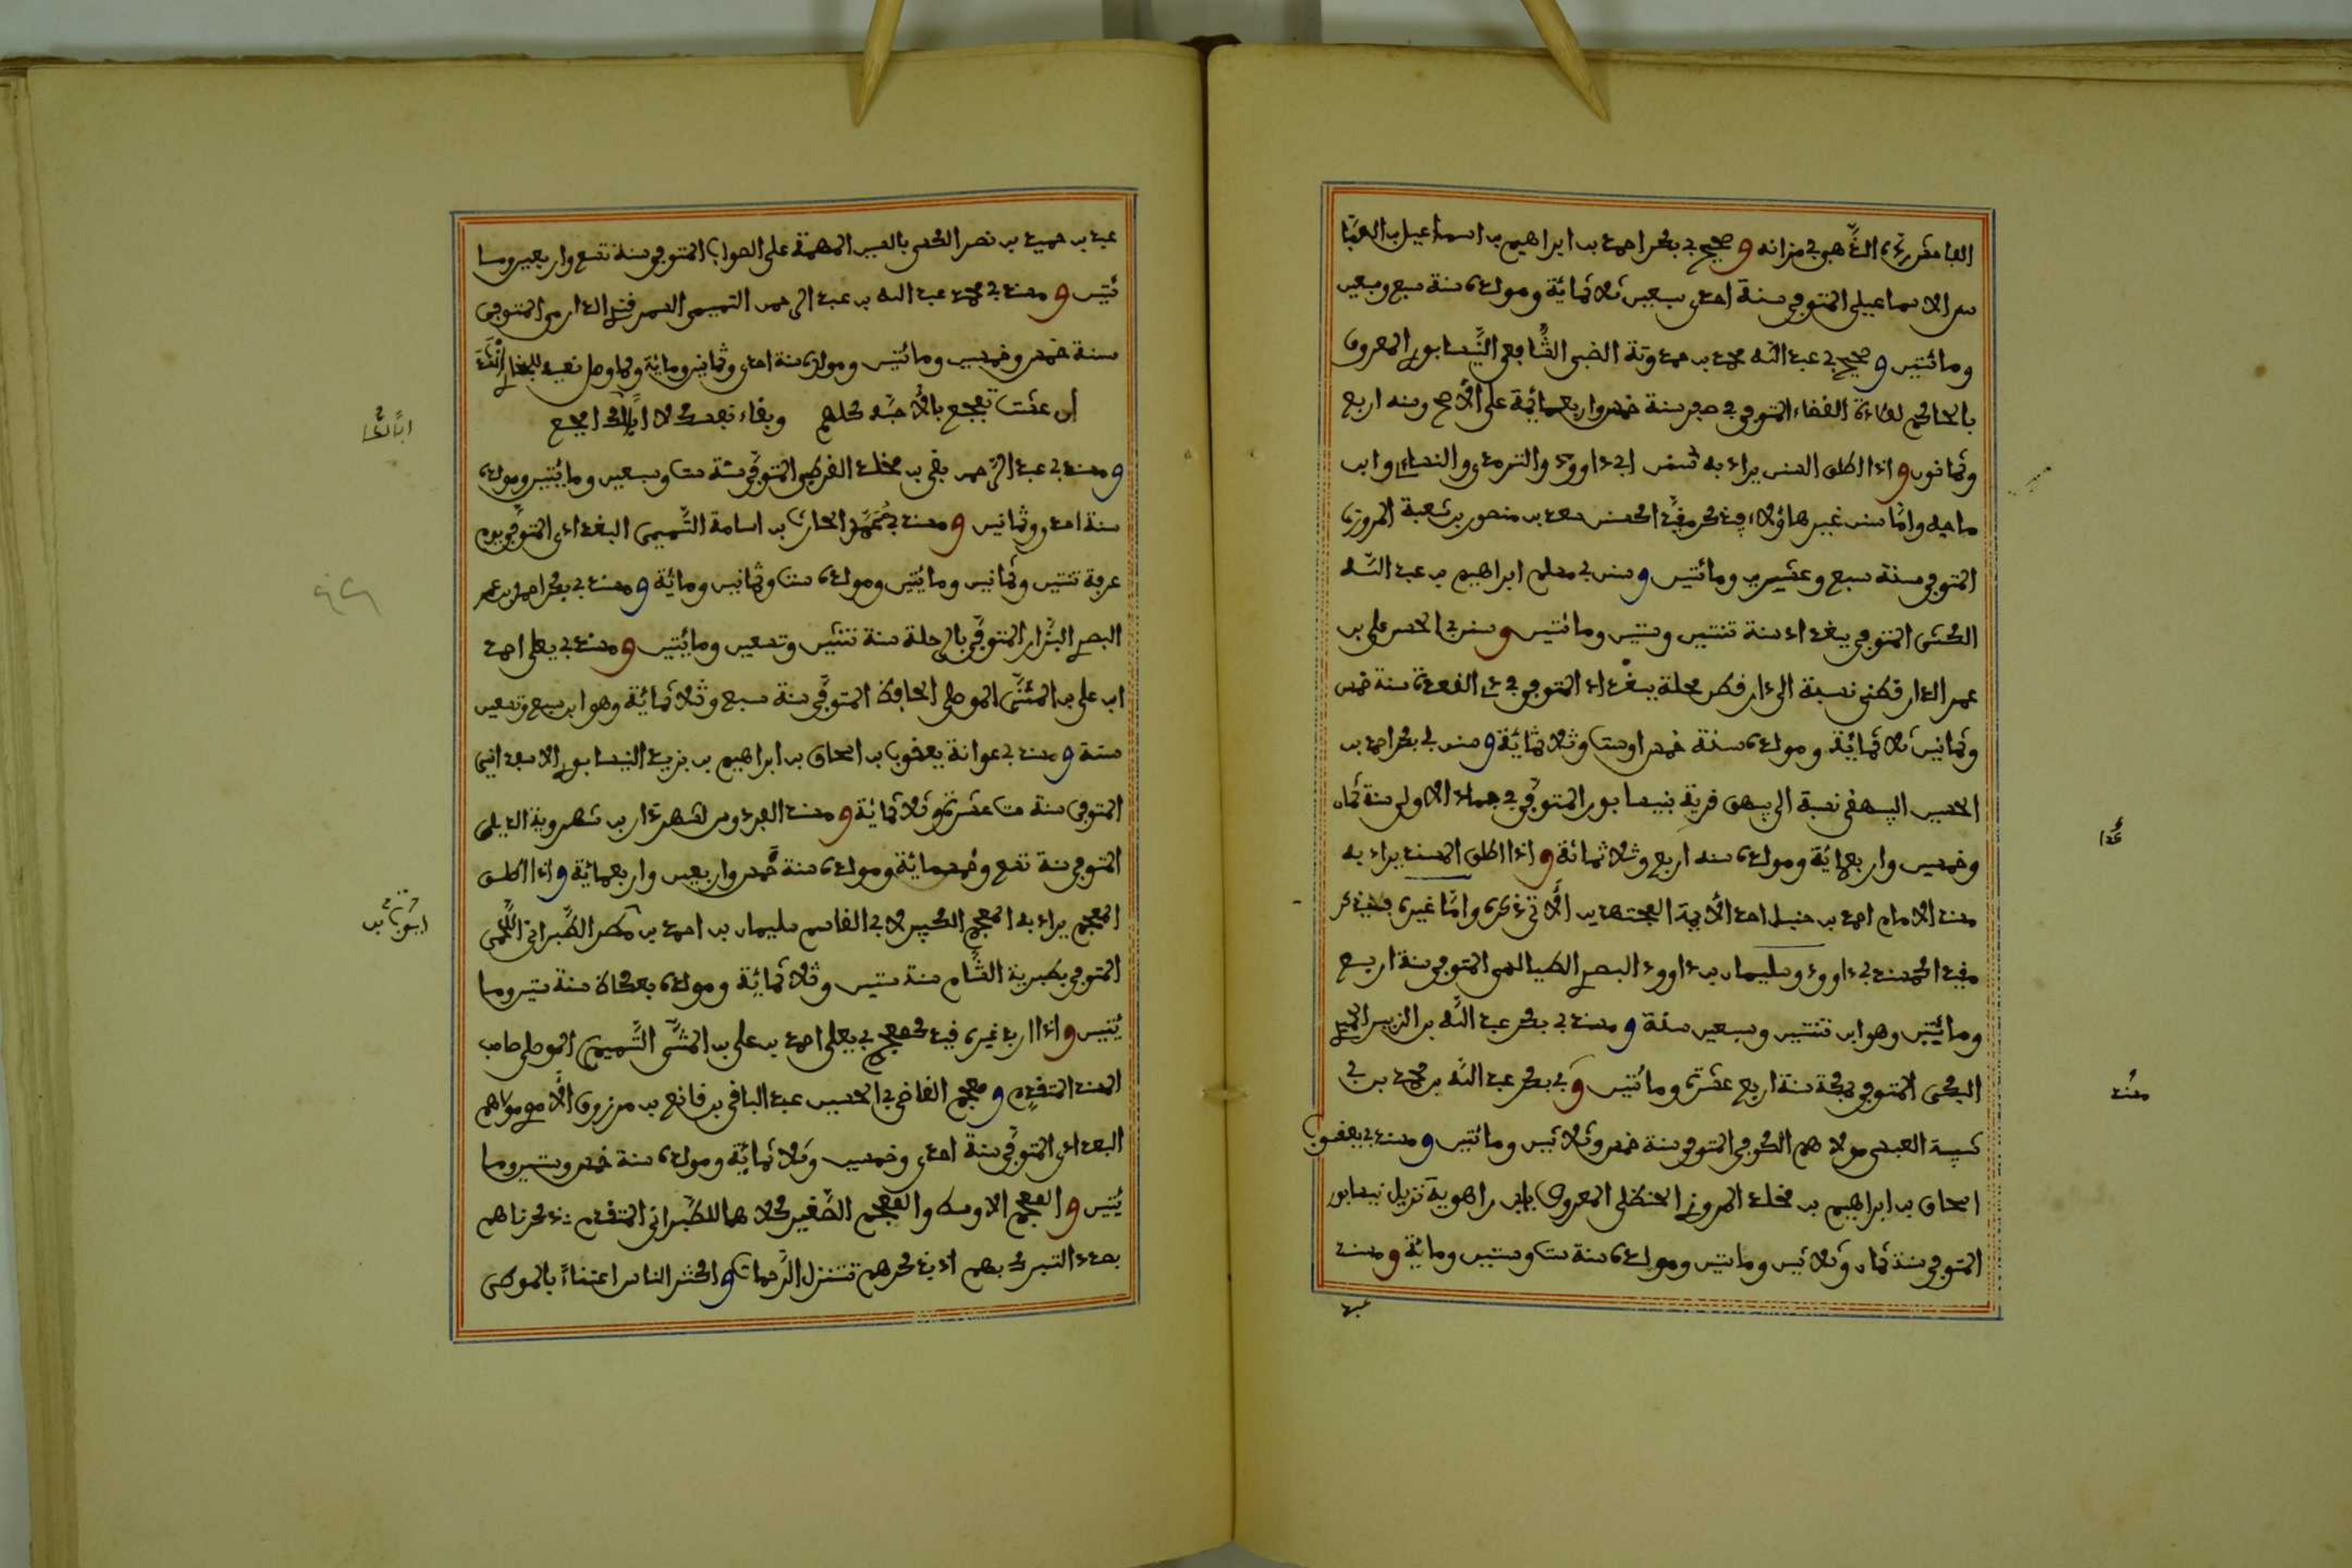 الفا مشر رى الذهبي في ميزانه وصحيح أبي بكر احمد بن ابراهيم بن اسماعيل بن العبا
س الاسماعيلي المتوفى سنة احدى وسبعين وثلاثمائة ومولده سنة سبع وسبعين
ومائتين وصحيح أبي عبد الله محمد بن حمدويه الضبي الشافعي النيسابوري المعروف
بالحاكم لعادة القضاء المتوفى في صفر سنة خمس واربعمائة على الأصح وسنه اربع
وثمانون واذا اطلق السنن يراد به سنن ابي داوود والترمذي والنساءي وابن
ماجه واما سنن غير هاؤلاء فيذكر مقيدا كسنن سعيد بن منصور بن شعبة المروزي
المتوفى سنة سبع وعشرين ومائتين وسنن أبي مسلم ابراهيم بن عبد الله
الكشي المتوفى ببغداد سنة ثنتين وستين ومائتين وسنن أبي الحسن علي بن
عمر الدارقطني نسبة الى دار قطن محلة ببغداد المتوفى في ذي القعدة سنة خمس
وثمانين ثلاثمائة ومولده سنة خمس او ست وثلاثمائة وسنن أبي بكر احمد بن
الحسين البيهقي نسبة الى بيهق قرية بنيسابور المتوفى في جمادى الاولى سنة ثمان
وخمسين واربعمائة ومولده سنه اربع وثلاثمائة واذا اطلق المسند يراد به
مسند الامام احمد بن حنبل احد الأئمة المجتهدين الآتي ذكره واما غيره فيذكر
مقيدا كمسند أبي داوود وسليمان بن داوود البصري الطيالسي المتوفى سنة اربع
ومائتين وهو ابن ثنتين وسبعين سنة ومسند أبي بكر عبد الله بن الزبير الحميدي
المكي المتوفى بمكة سنة اربع عشرة ومائتين وأبي بكر عبد الله بن محمد بن أبي
شيبة العبسي مولاهم الكوفي المتوفى سنة خمس وثلاثين ومائتين ومسند أبي يعقوب
اسحاق بن ابراهيم بن مخلد المروزي الحنظلي المعروف بابن راهوية نزيل نيسابور
المتوفى سنة ثمان وثلاثين ومائتين ومولده سنة ست وستين ومائة ومسند
عبد
مسند
عبد بن حميد بن نصر الكسي بالسين المهملة على الصواب المتوفى سنة تسع واربعين وما
ئتين ومسند أبي محمد عبد الله بن عبد الرحمن التميمي السمرقندي الدارمي المتوفى
سنة خمس وخمسين ومائتين ومولده سنة احدى وثمانين ومائة ولما وصل نعيه للبخاري أنشد
إن عشت تفجع بالأحبة كلهم وبقاء نفسك لا ابالك افجع
ومسند أبي عبد الرحمن بقي بن مخلد القرطبي المتوفى سنة ست وسبعين ومائتين ومولده
سنة احدى وثمانين ومسند أبي محمد الحارث بن اسامة التميمي البغدادي المتوفى يوم
عرفة ثنتين وثمانين ومائتين ومولده ست وثمانين ومائة ومسند أبي بكر احمد بن عمر
البصري البزار المتوفى بالرملة سنة ثنتين وتسعين ومائتين ومسند أبي يعلى احمد
ابن علي بن المثنى الموصلي الحافظ المتوفى سنة سبع وثلاثمائة وهو ابن سبع وتسعين
سنة ومسند أبي عوانة يعقوب بن اسحاق بن ابراهيم بن يزيد النيسابوري الاسفرائني
المتوفى سنة ست عشرة وثلاثمائة ومسند الفردوس لشهردار بن شهروية الديلمي
المتوفى سنة تسع وخمسمائة ومولده سنة خمس واربعين واربعمائة واذا اطلق
المعجم يراد به المعجم الكبير لأبي القاسم سليمان بن احمد بن مطير الطبراني اللخمي
المتوفى بطبرية الشام سنة ستين وثلاثمائة ومولده بعكا سنة ستين وما
ئتين واذا اريد غيره قيد كمعجم أبي يعلى احمد بن علي بن المثنى التميمي الموصلي صاحب
المسند المتقدم ومعجم القاضي أبي الحسين عبد الباقي بن قانع بن مرزوق الأموي مولاهم
البغدادي المتوفى سنة احدى وخمسين وثلاثمائة ومولده سنة خمس وستين وما
ئتين والمعجم الاوسط والمعجم الصغير كلاهما للطبراني المتقدم ذكرناهم
بصدد التبرك بهم اذ بذكرهم تتنزل الرحمات واكثر الناس اعتناءً بالموطى
ابا لكا